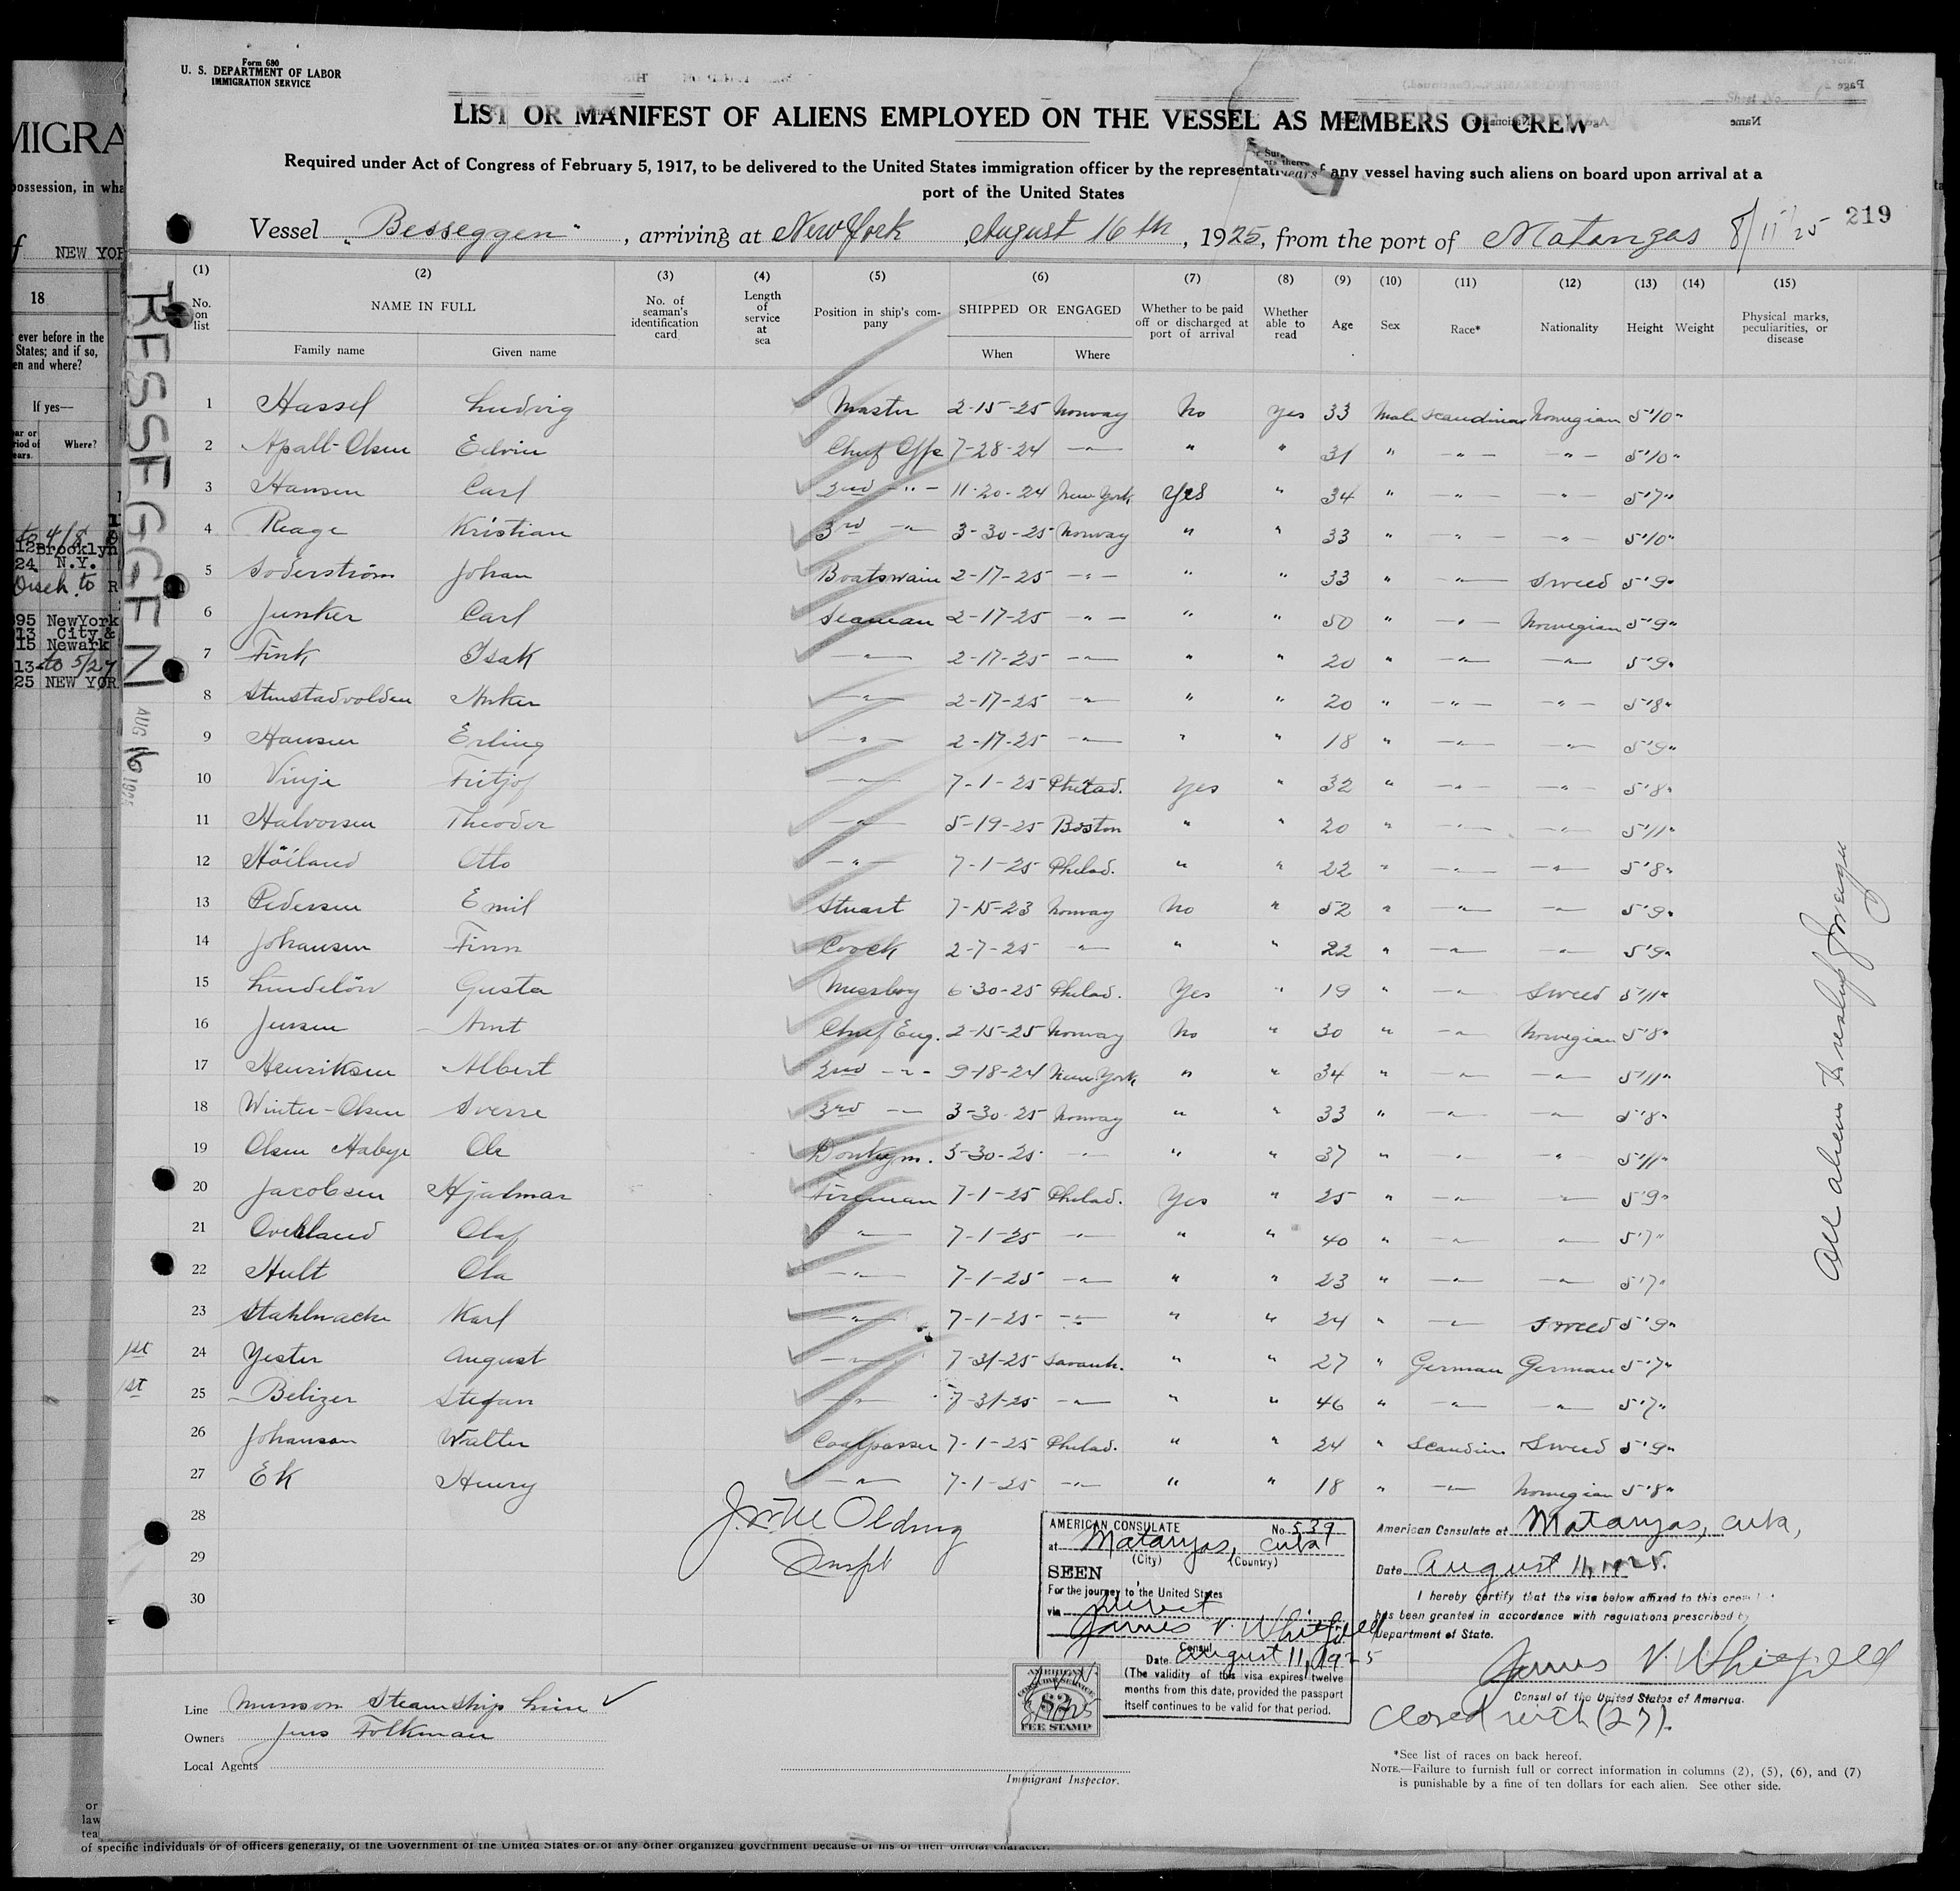 Form 680
U. S. DEPARTMENT OF LABOR
IMMIGRATION SERVICE
LIST OR MANIFEST OF ALIENS EMPLOYED ON THE VESSEL AS MEMBERS OF CREW
Required under Act of Congress of February 5, 1917, to be delivered to the United States immigration officer by the representatives of any vessel having such aliens on board upon arrival at a
port of the United States
219
Vessel "Besseggen", arriving at New York, August 16th, 1925, from the port of Matanzas 8/11/25
(1) (2) (3) (4) (5) (6) (7) (8) (9) (10) (11) (12) (13) (14) (15)
No. on list NAME IN FULL No. of seaman's identification card Length of service at sea Position in ship's company SHIPPED OR ENGAGED Whether to be paid off or discharged at port of arrival Whether able to read Age Sex Race* Nationality Height Weight Physical marks, peculiarities, or disease
Family name Given name When Where
1 Hassel Ludvig Master 2-15-25 Norway No Yes 33 Male Scandinav Norwegian 5'10"
2 Apall-Olsen Edvin Chief Offc 7-28-24 -"- " " 31 " -"- -"- 5'10"
3 Hansen Carl 2nd -"- 11-20-24 New York Yes " 34 " -"- -"- 5'7"
4 Reage Kristian 3rd -"- 3-30-25 Norway " " 33 " -"- -"- 5'10"
5 Soderström Johan Boatswain 2-17-25 -"- " " 33 " -"- Sweed 5'9"
6 Junker Carl Seaman 2-17-25 -"- " " 50 " -"- Norwegian 5'9"
7 Fink Isak -"- 2-17-25 -"- " " 20 " -"- -"- 5'9"
8 Stenstadvolden Anker -"- 2-17-25 -"- " " 20 " -"- -"- 5'8"
9 Hansen Erling -"- 2-17-25 -"- " " 18 " -"- -"- 5'9"
10 Vinje Fritjof -"- 7-1-25 Philad. Yes " 32 " -"- -"- 5'8"
11 Halvorsen Theodor -"- 5-19-25 Boston " " 20 " -"- -"- 5'11"
12 Höiland Otto -"- 7-1-25 Philad. " " 22 " -"- -"- 5'8"
13 Pedersen Emil Stuart 7-15-23 Norway No " 52 " -"- -"- 5'9"
14 Johansen Finn Coock 2-7-25 -"- " " 22 " -"- -"- 5'9"
15 Lindelöw Gusta Messboy 6-30-25 Philad. Yes " 19 " -"- Sweed 5'11"
16 Jensen Arnt Chief Eng. 2-15-25 Norway No " 30 " -"- Norwegian 5'8"
17 Henriksen Albert 2nd -"- 9-18-24 New York " " 34 " -"- -"- 5'11"
18 Winter-Olsen Sverre 3rd -"- 3-30-25 Norway " " 33 " -"- -"- 5'8"
19 Olsen Habye Ole Donkeym. 3-30-25 -"- " " 37 " -"- -"- 5'11"
20 Jacobsen Hjalmar Fireman 7-1-25 Philad. Yes " 25 " -"- -"- 5'9"
21 Overland Olaf -"- 7-1-25 -"- " " 40 " -"- -"- 5'7"
22 Hult Ola -"- 7-1-25 -"- " " 23 " -"- -"- 5'7"
23 Karl -"- 7-1-25 -"- " " 24 " -"- Sweed 5'9"
1st 24 Yester August -"- 7-31-25 Savanh. " " 27 " German German 5'7"
1st 25 Belizer Stefan -"- 7-31-25 -"- " " 46 " -"- -"- 5'7"
26 Johanson Walter Coalpasser 7-1-25 Philad. " " 24 " Scandin Sweed 5'9"
27 Ek Henry -"- 7-1-25 -"- " " 18 " -"- Norwegian 5'8"
28
29
30
BESSEGGEN
AUG 16 1925
All aliens to reship foreign
Olding
Inspt
AMERICAN CONSULATE No. 539
at Matanzas, Cuba
(City) (Country)
SEEN
For the journey to the United States
via direct
James V. Whitfield
Consul
Date August 11, 1925
(The validity of this visa expires twelve
months from this date, provided the passport
itself continues to be valid for that period.
AMERICAN
CONSULAR SERVICE
$2
FEE STAMP
American Consulate at Matanzas, Cuba,
Date August 11, 1925.
I hereby certify that the visa below affixed to this crew
has been granted in accordance with regulations prescribed by
Department of State.
James V. Whitfield
Consul of the United States of America.
Closed with (27).
Line Munson Steamship Line
Owners Jens Folkman
Local Agents
Immigrant Inspector.
*See list of races on back hereof.
NOTE.—Failure to furnish full or correct information in columns (2), (5), (6), and (7)
is punishable by a fine of ten dollars for each alien. See other side.
MIGRA
possession, in wha
NEW YOR
18
ever before in the
States; and if so,
en and where?
If yes—
Where?
to 4/8
Brooklyn
24 N.Y.
Disch. to
95 NewYork
13 City &
15 Newark
13 to 5/27
25 NEW YOR
or
law
tea
of specific individuals or of officers generally, of the Government of the United States or of any other organized government because of his or their official character.